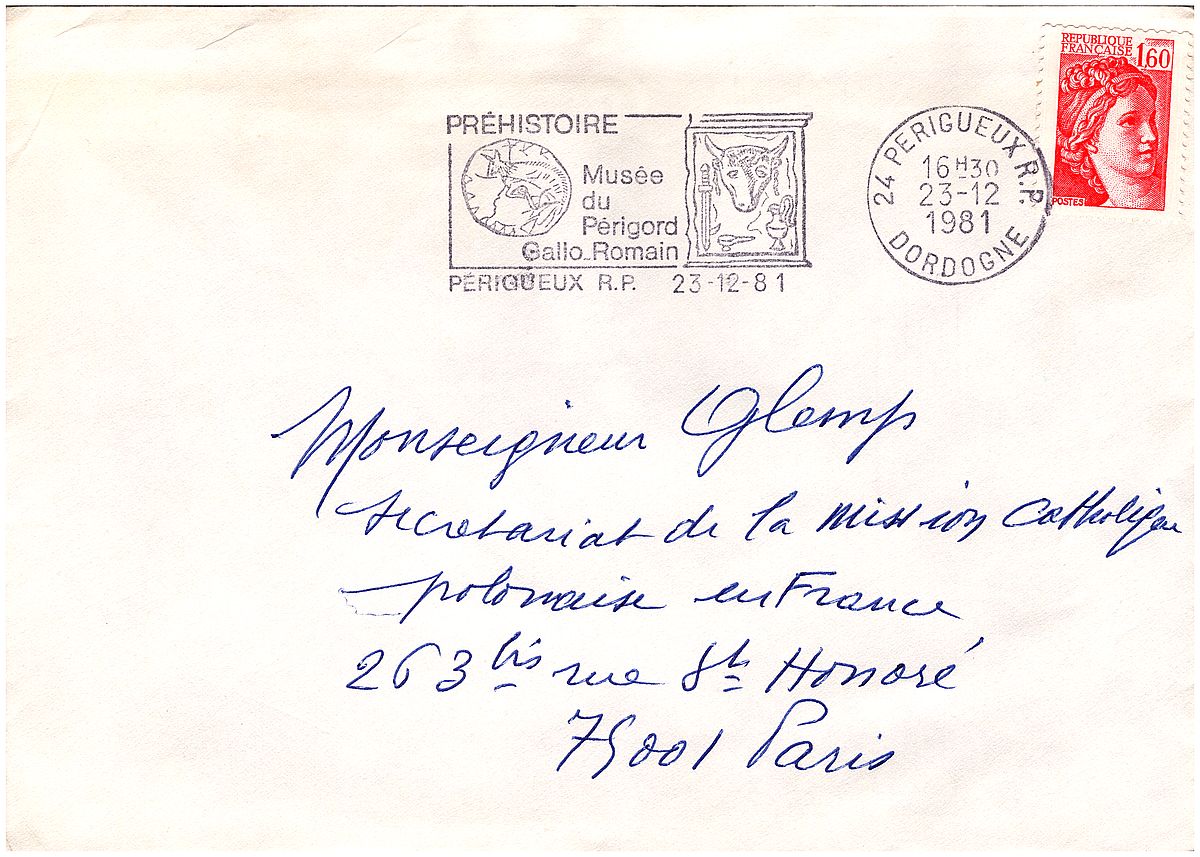 REPUBLIQUE
FRANÇAISE 1,60
POSTES
PRÉHISTOIRE
Musée
du
Périgord
Gallo-Romain
PÉRIGUEUX R.P. 23-12-81
24 PERIGUEUX R.P.
16H30
23-12
1981
DORDOGNE
Monseigneur Glemp
secretariat de la Mission Catholique
polonaise en France
263 bis rue St Honoré
75001 Paris